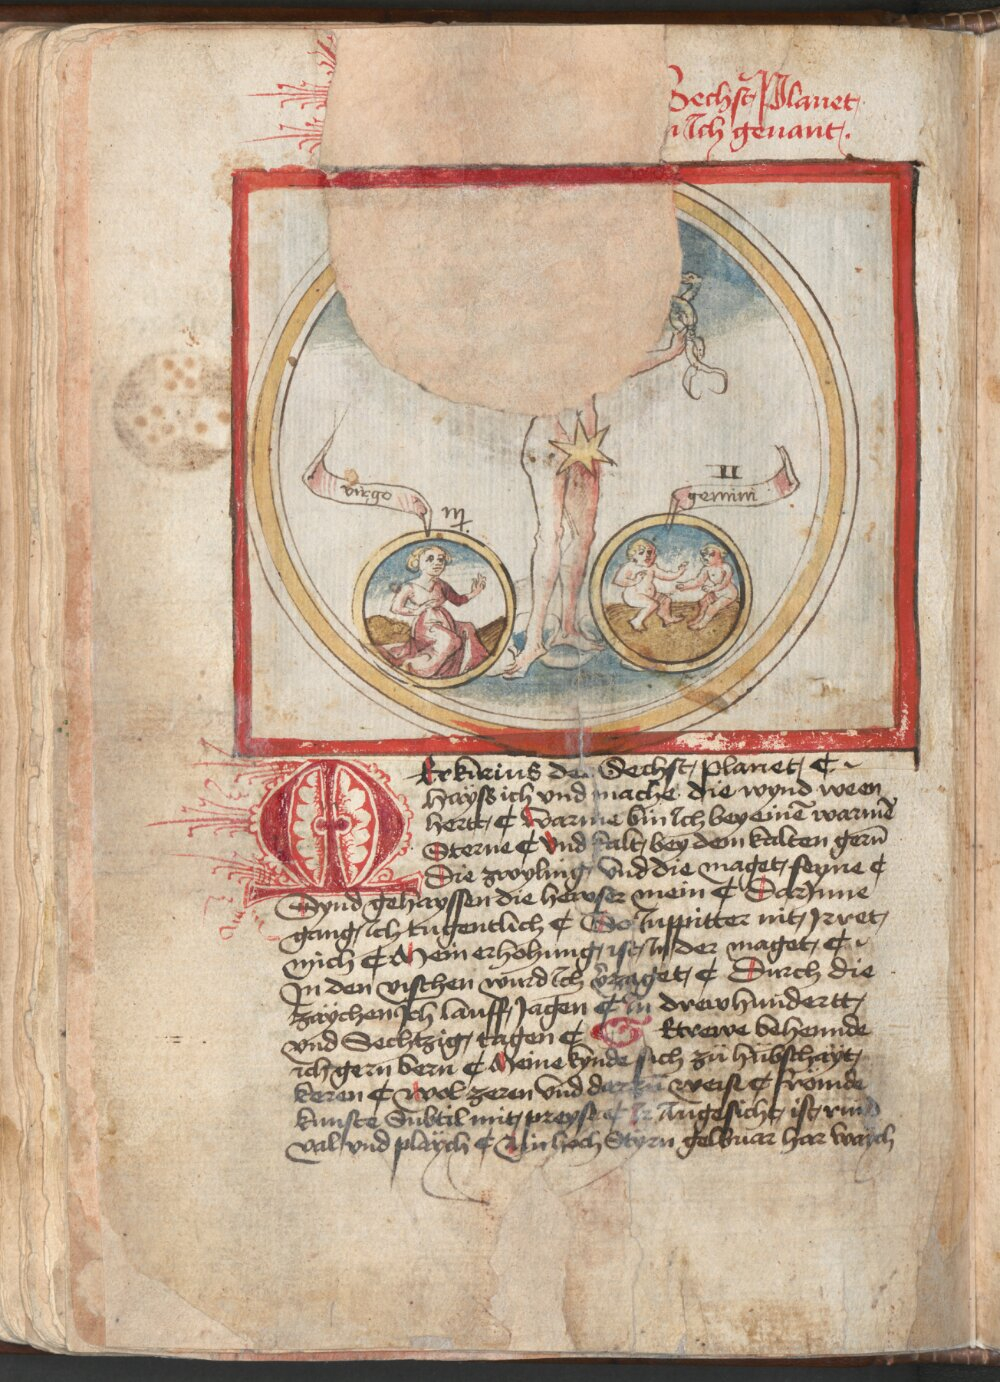 Sechst Planet
ich genant.
virgo
♍
II
gemini
Merkurius der Sechst planet ¢
hayss ich vnd mache die wynd ween
hertt ¢ Warme bin Ich bey einē warmē
Sterne ¢ Vnd kalt bey dem kalten gern̄
Die zwyling vnd die maget feyne ¢
Synd gehayssen die hewser mein ¢ DarJnne
gang Ich tugentlich ¢ So Juppitter nit Jrret
mich ¢ Mein erhöhung ist In der maget ¢
In den vischen wurd Ich v̄zaget ¢ Durch die
zaychen Ich lauff Jagen ¢ in drewhundertt
vnd Sechtzig tagen ¢ Getrewe behennde
ich gern bern ¢ Meine kynde sich zü hübschayt
keren ¢ wol zeren vnd darzü weist ¢ frömde
kunste Subtil mit preyst ¢ Ir Angesicht ist rund
val vnd playch ¢ Ein hoch Styrn gelbuar har waych